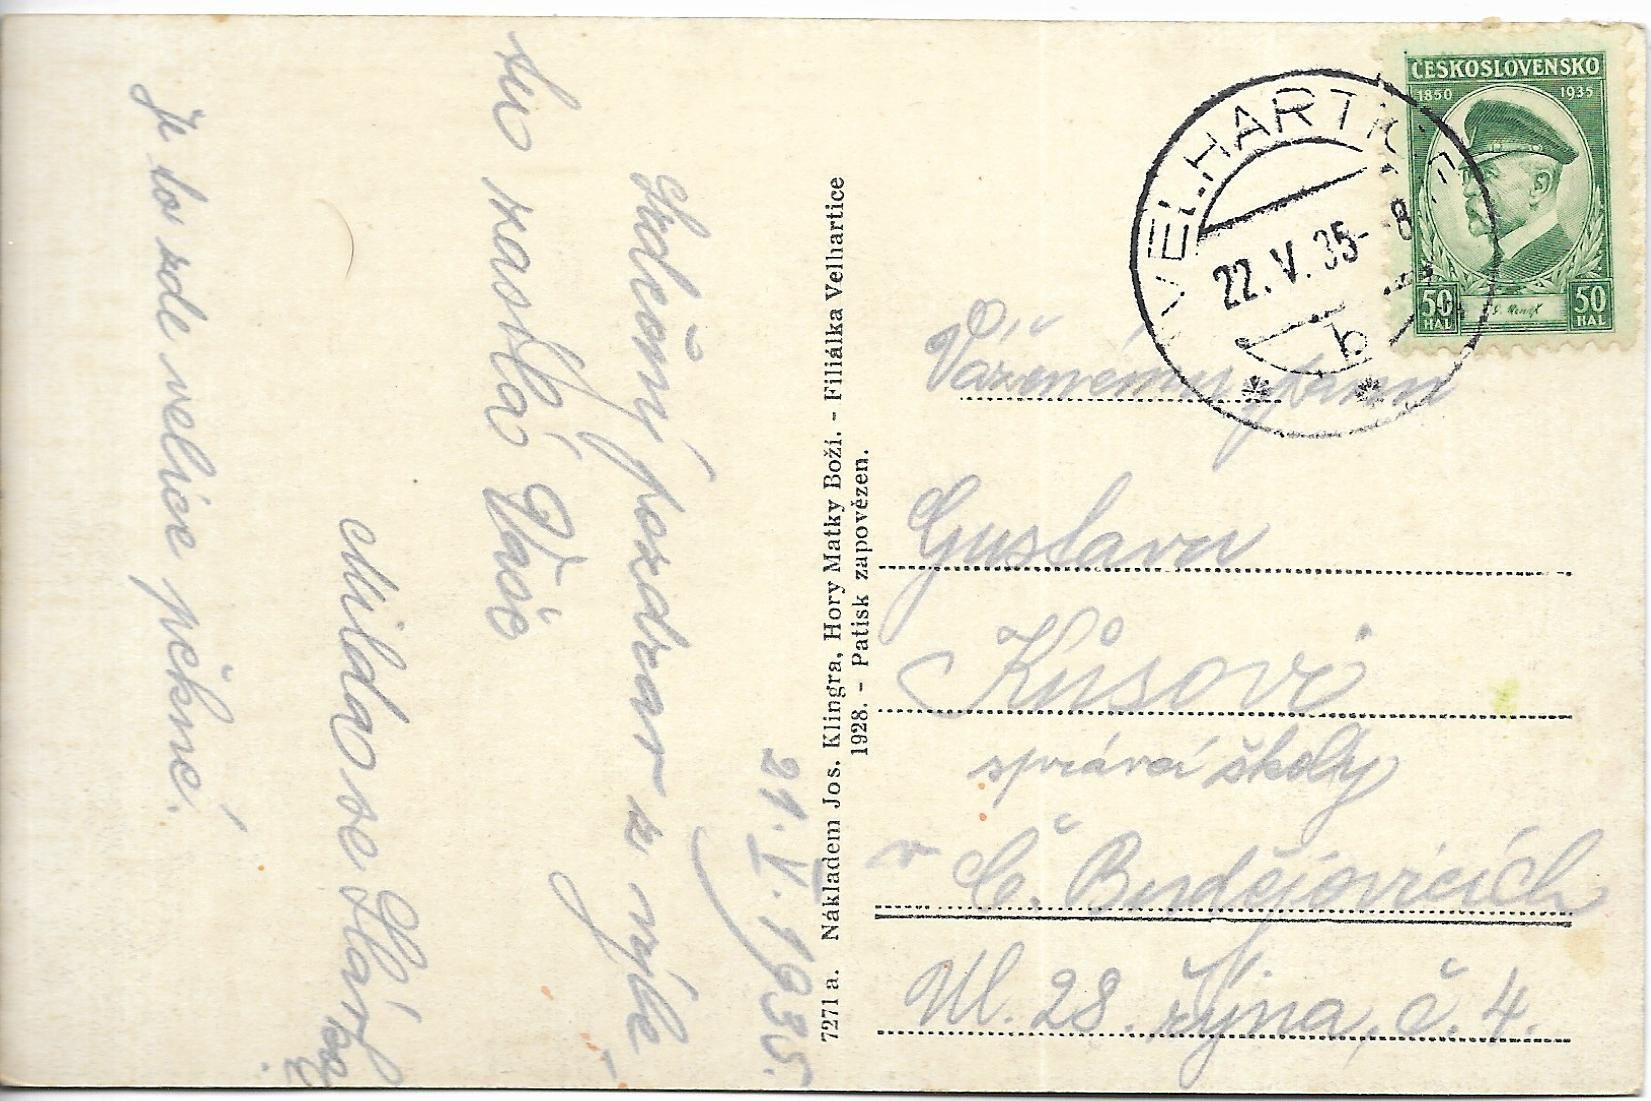 21. V. 1935.
Srdečný pozdrav z výle
tu zasílá Vaše
Milda se Sláv
kou.
Je to zde velice pěkné.
7271 a. Nákladem Jos. Klingra, Hory Matky Boží. - Filiálka Velhartice
1928. - Patisk zapovězen.
ČESKOSLOVENSKO
1850 1935
50 HAL 50 HAL
VELHARTICE
22. V. 35 - 8
b
Váženému panu
Gustavu
Kůsovi
správci školy
v Č. Budějovicích
Ul. 28. října, č. 4.